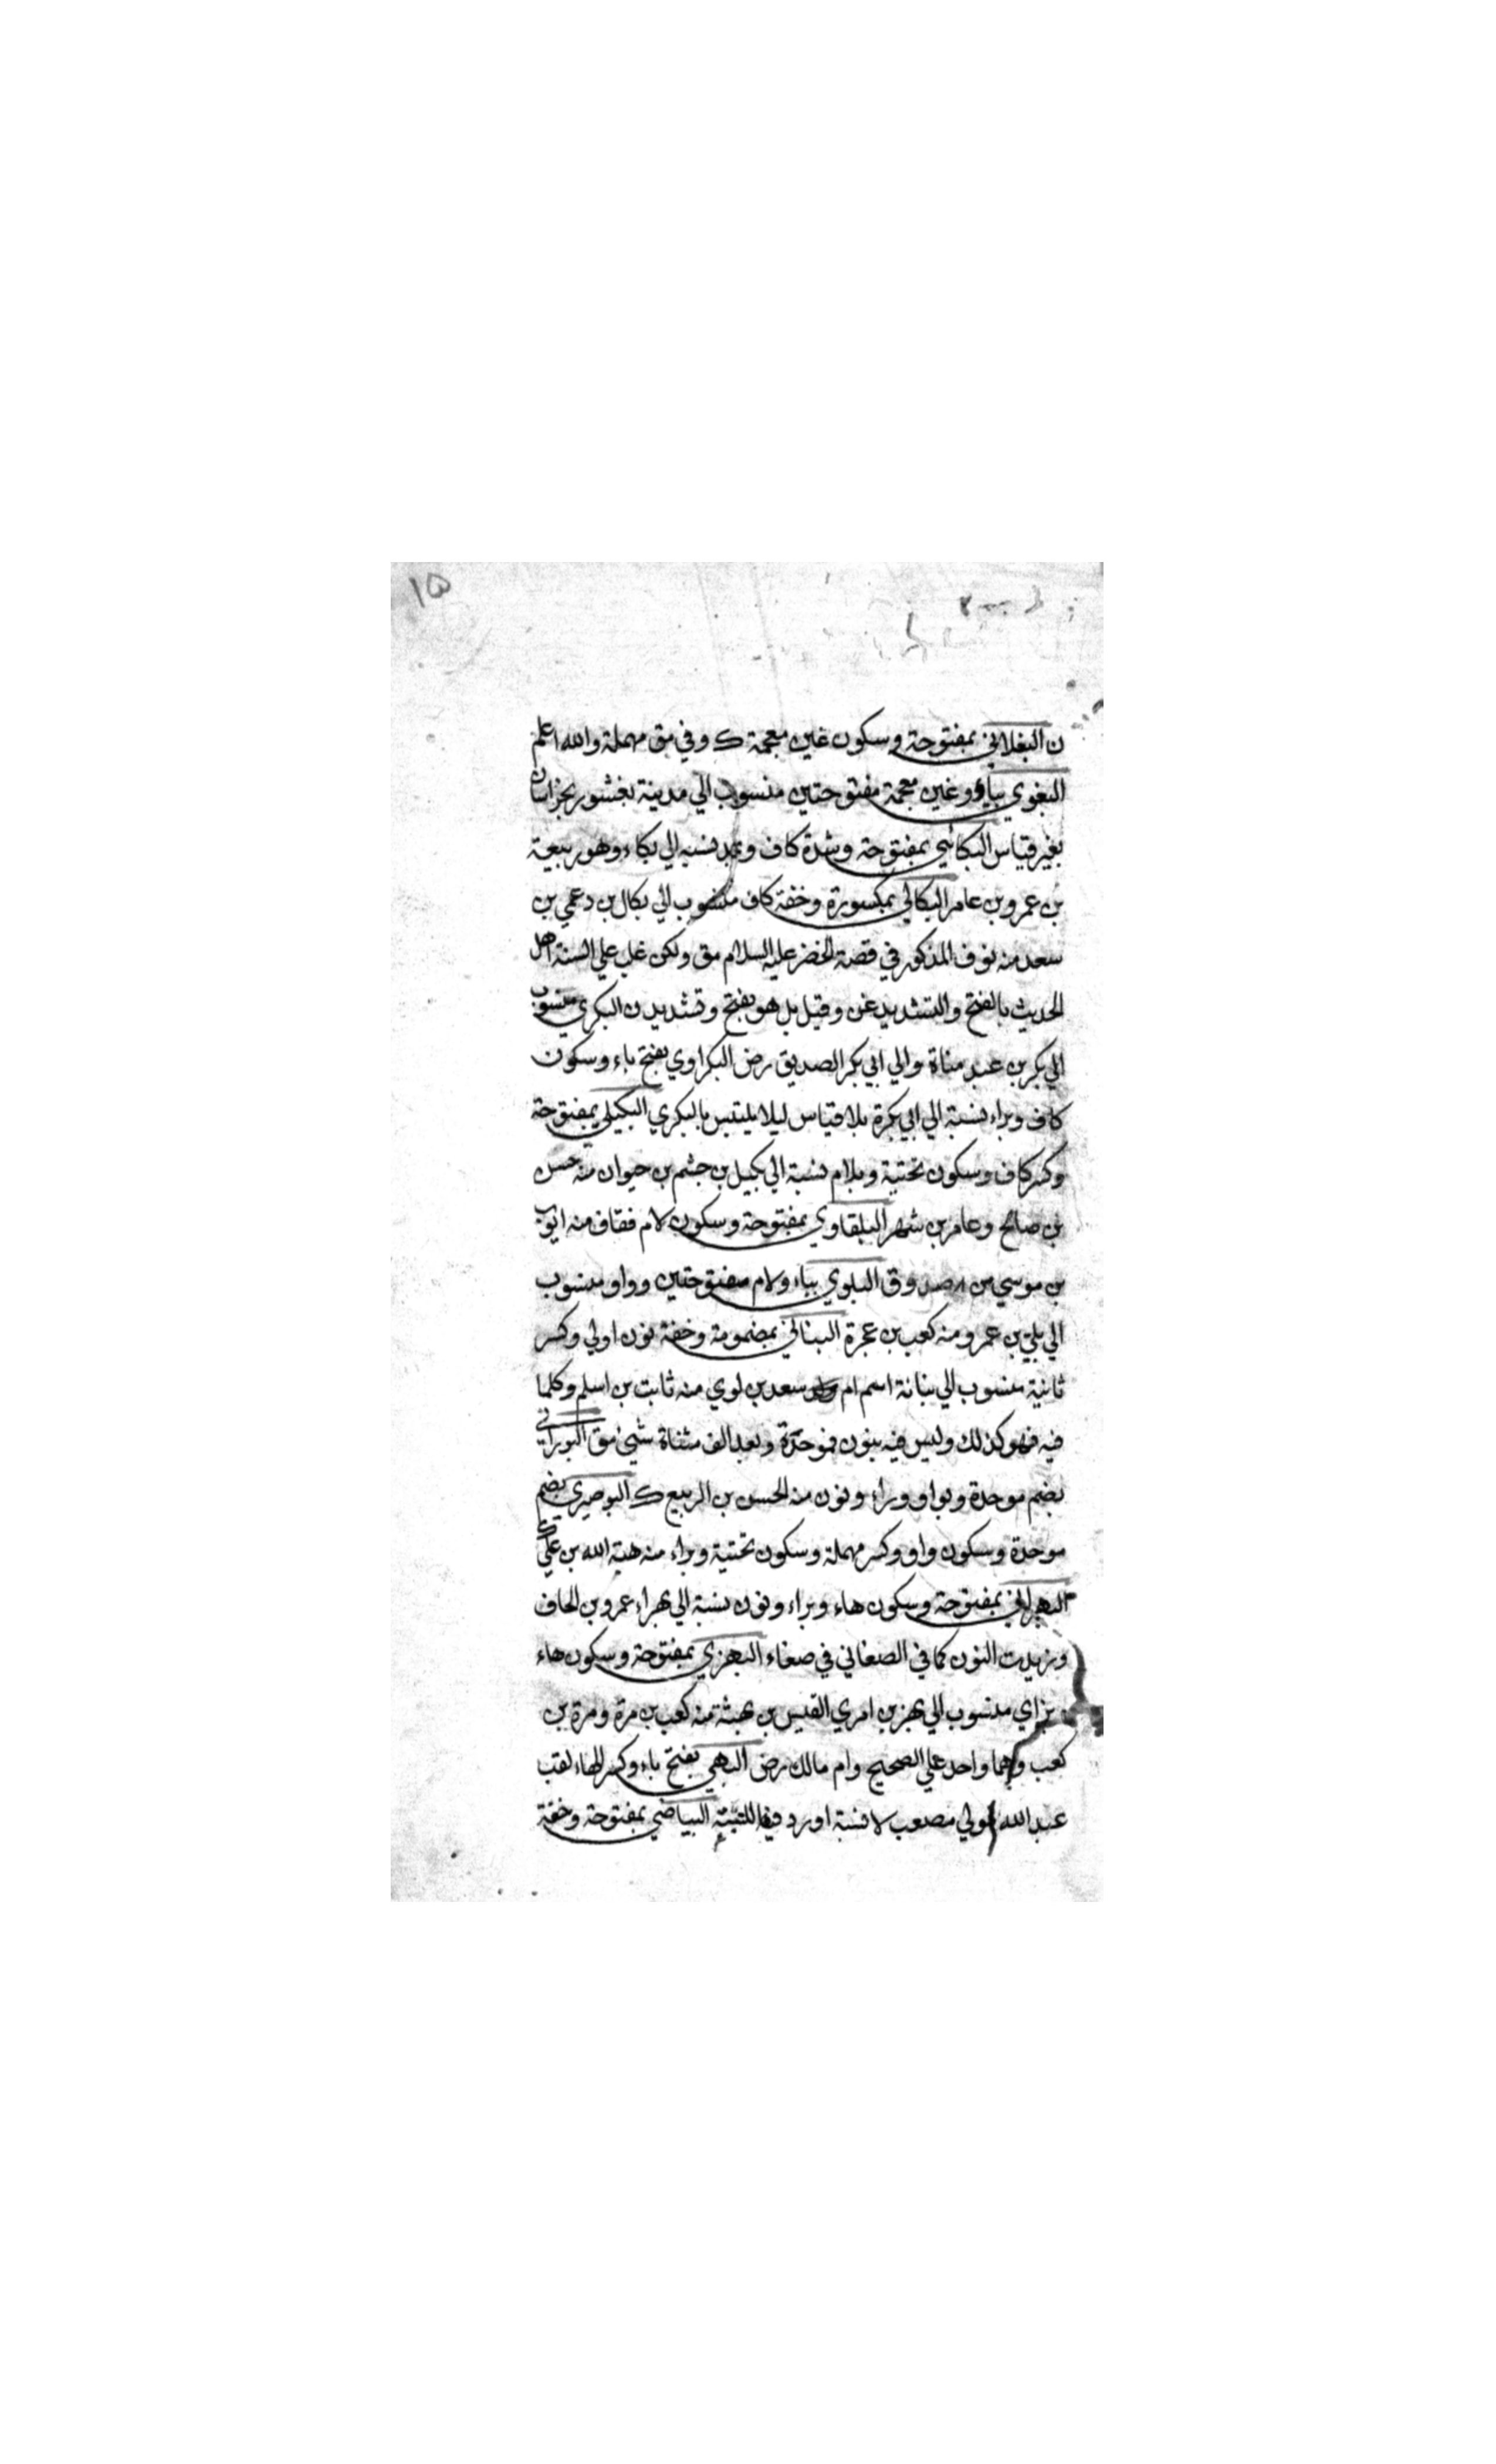 ١٥
ن البغلاني بمفتوحة وسكون غين معجمة ك وفي مق مهملة والله اعلم
البغوي بباء وغين معجمة مفتوحتين منسوب الي مدينة بغشور بخراسان
بغير قياس البكائي بمفتوحة وشدة كاف وبمد نسبه الي بكاء وهو ربيعة
بن عمرو بن عامر البكالي بمكسورة وخفة كاف منسوب الي بكال بن دعمي بن
سعد منه نوف المذكور في قصة الخضر عليه السلام مق ولكن غلب علي السنة اهل
الحديث بالفتح والتشديد غن وقيل بل هو بفتح وتشديد ن البكري منسوب
الي بكر بن عبد مناة والي ابي بكر الصديق رض البكراوي بفتح باء وسكون
كاف وبراء نسبة الي ابي بكرة بلا قياس ليلا يلتبس بالبكري البكيلي بمفتوحة
وكسر كاف وسكون تحتية وبلام نسبة الي بكيل بن جشم بن حيوان منه حسن
بن صالح وعامر بن شهر البلقاوي بمفتوحة وسكون لام فقاف منه ايوب
بن موسي من البلوي بباء ولام مفتوحتين وواو منسوب
الي بلي بن عمرو منه كعب بن عجرة البناني بمضمومة وخفة نون اولي وكسر
ثانية منسوب الي بنانة اسم ام سعد بن لوي منه ثابت بن اسلم وكلما
فيه فهو كذلك وليس فيه بنون فموحدة وبعد الف مثناة شيئ مق البوراني
بضم موحدة وبواو وراء ونون منه الحسن بن الربيع ك البوصيري بضم
موحدة وسكون واو وكسر مهملة وسكون تحتية وبراء منه هبة الله بن علي ك
البهراني بمفتوحة وسكون هاء وبراء ونون نسبة الي بهراء عمرو بن الحاف
وزيدت النون كما في الصنعاني في صنعاء البهزي بمفتوحة وسكون هاء
وبزاي منسوب الي بهز بن امري القيس بن بهثة منه كعب بن مرة ومرة بن
كعب وهما واحد علي الصحيح وام مالك رض البهي بفتح باء وكسر الهاء لقب
عبد الله مولي مصعب لا نسبة اورد فيها البياضي بمفتوحة وخفة